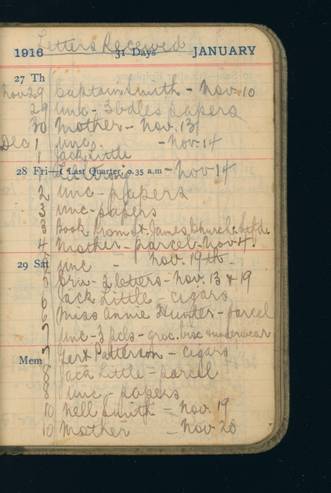 Letters Received
1916 31 Days JANUARY
27 Th
Nov 29 Captain Smith - Nov. 10
29 Unc - 3 bdles papers
30 Mother - Nov. 13
Dec 1 Unc. - Nov 14
1 Jack Little
28 Fri—( Last Quarter, 0.35 a.m - Nov 14
2 Unc - papers
3 Unc - papers
3 Book from St. James Church
4 Mother - parcel - Nov 4
29 Sat Unc - Nov. 19th
5 2 letters - Nov. 13 & 19
6 Jack Little - cigars
6 Miss Annie Hunter - parcel
7 Unc - 3 pcls - groc.
7 Peterson - cigars
Mem
8 Jack Little - parcel
8 Unc - papers
10 Nell Smith - Nov. 19
10 Mother - Nov 20